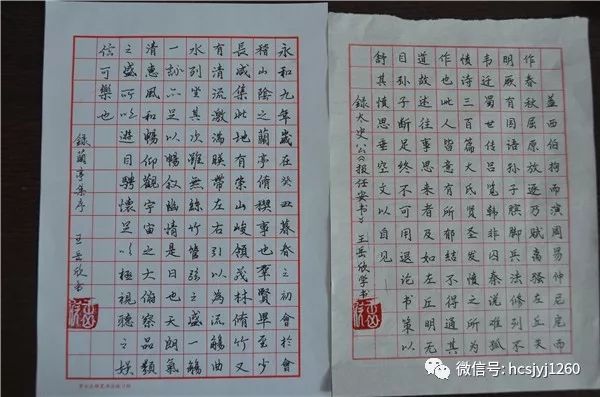 永和九年歲在癸丑暮春之初會於會
稽山陰之蘭亭脩稧事也羣賢畢至少
長咸集此地有崇山峻領茂林脩竹又
有清流激湍暎帶左右引以為流觴曲
水列坐其次雖無絲竹管弦之盛一觴
一詠亦足以暢敘幽情是日也天朗氣
清惠風和暢仰觀宇宙之大俯察品類
之盛所以遊目騁懷足以極視聽之娛
信可樂也
錄蘭亭集序 王岳欣書
蓋西伯拘而演周易仲尼厄而
作春秋屈原放逐乃賦離騷左丘失
明厥有國語孫子臏腳兵法修列不
韦迁蜀世傳呂覽韓非囚秦說難孤
憤詩三百篇大氐賢聖發憤之所為
作也此人皆意有所郁結不得通其
道故述往事思來者及如左丘明无
目孫子斷足終不可用退論書策以
舒其憤思垂空文以自見
錄太史公《報任安書》 王岳欣學書
微信号: hcsjyj1260